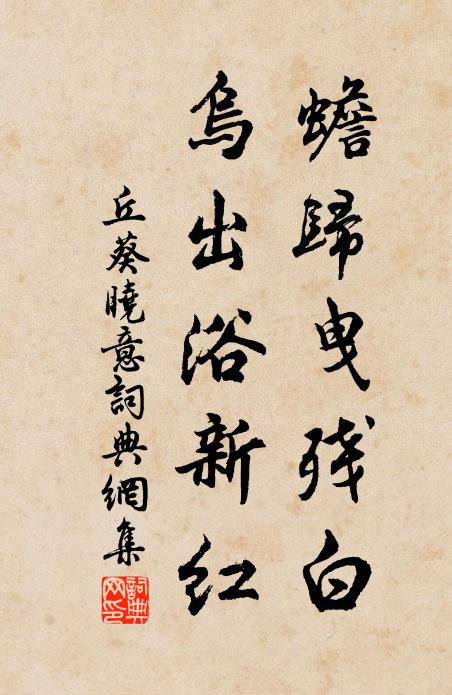 蟾歸曳残白
烏出浴新紅
丘葵曉意詞典網集
詞典网印